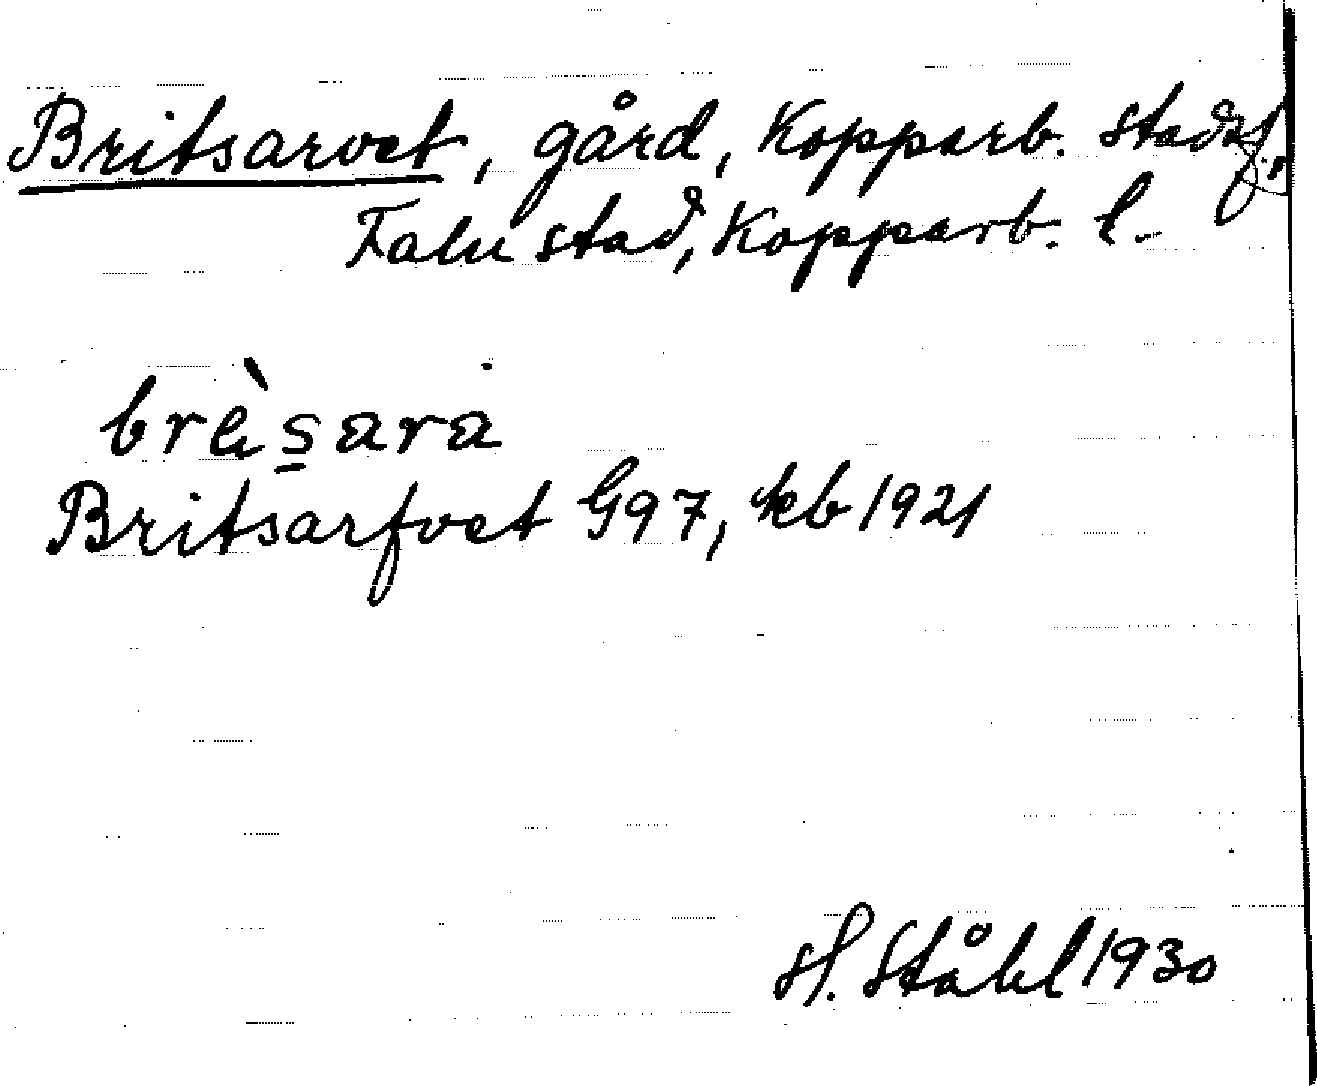 Britsarvet, gård, Kopparb. stadsf.,
Falu stad, Kopparb. l.
brèsara
Britsarfvet G97, kb 1921
H. Ståhl 1930